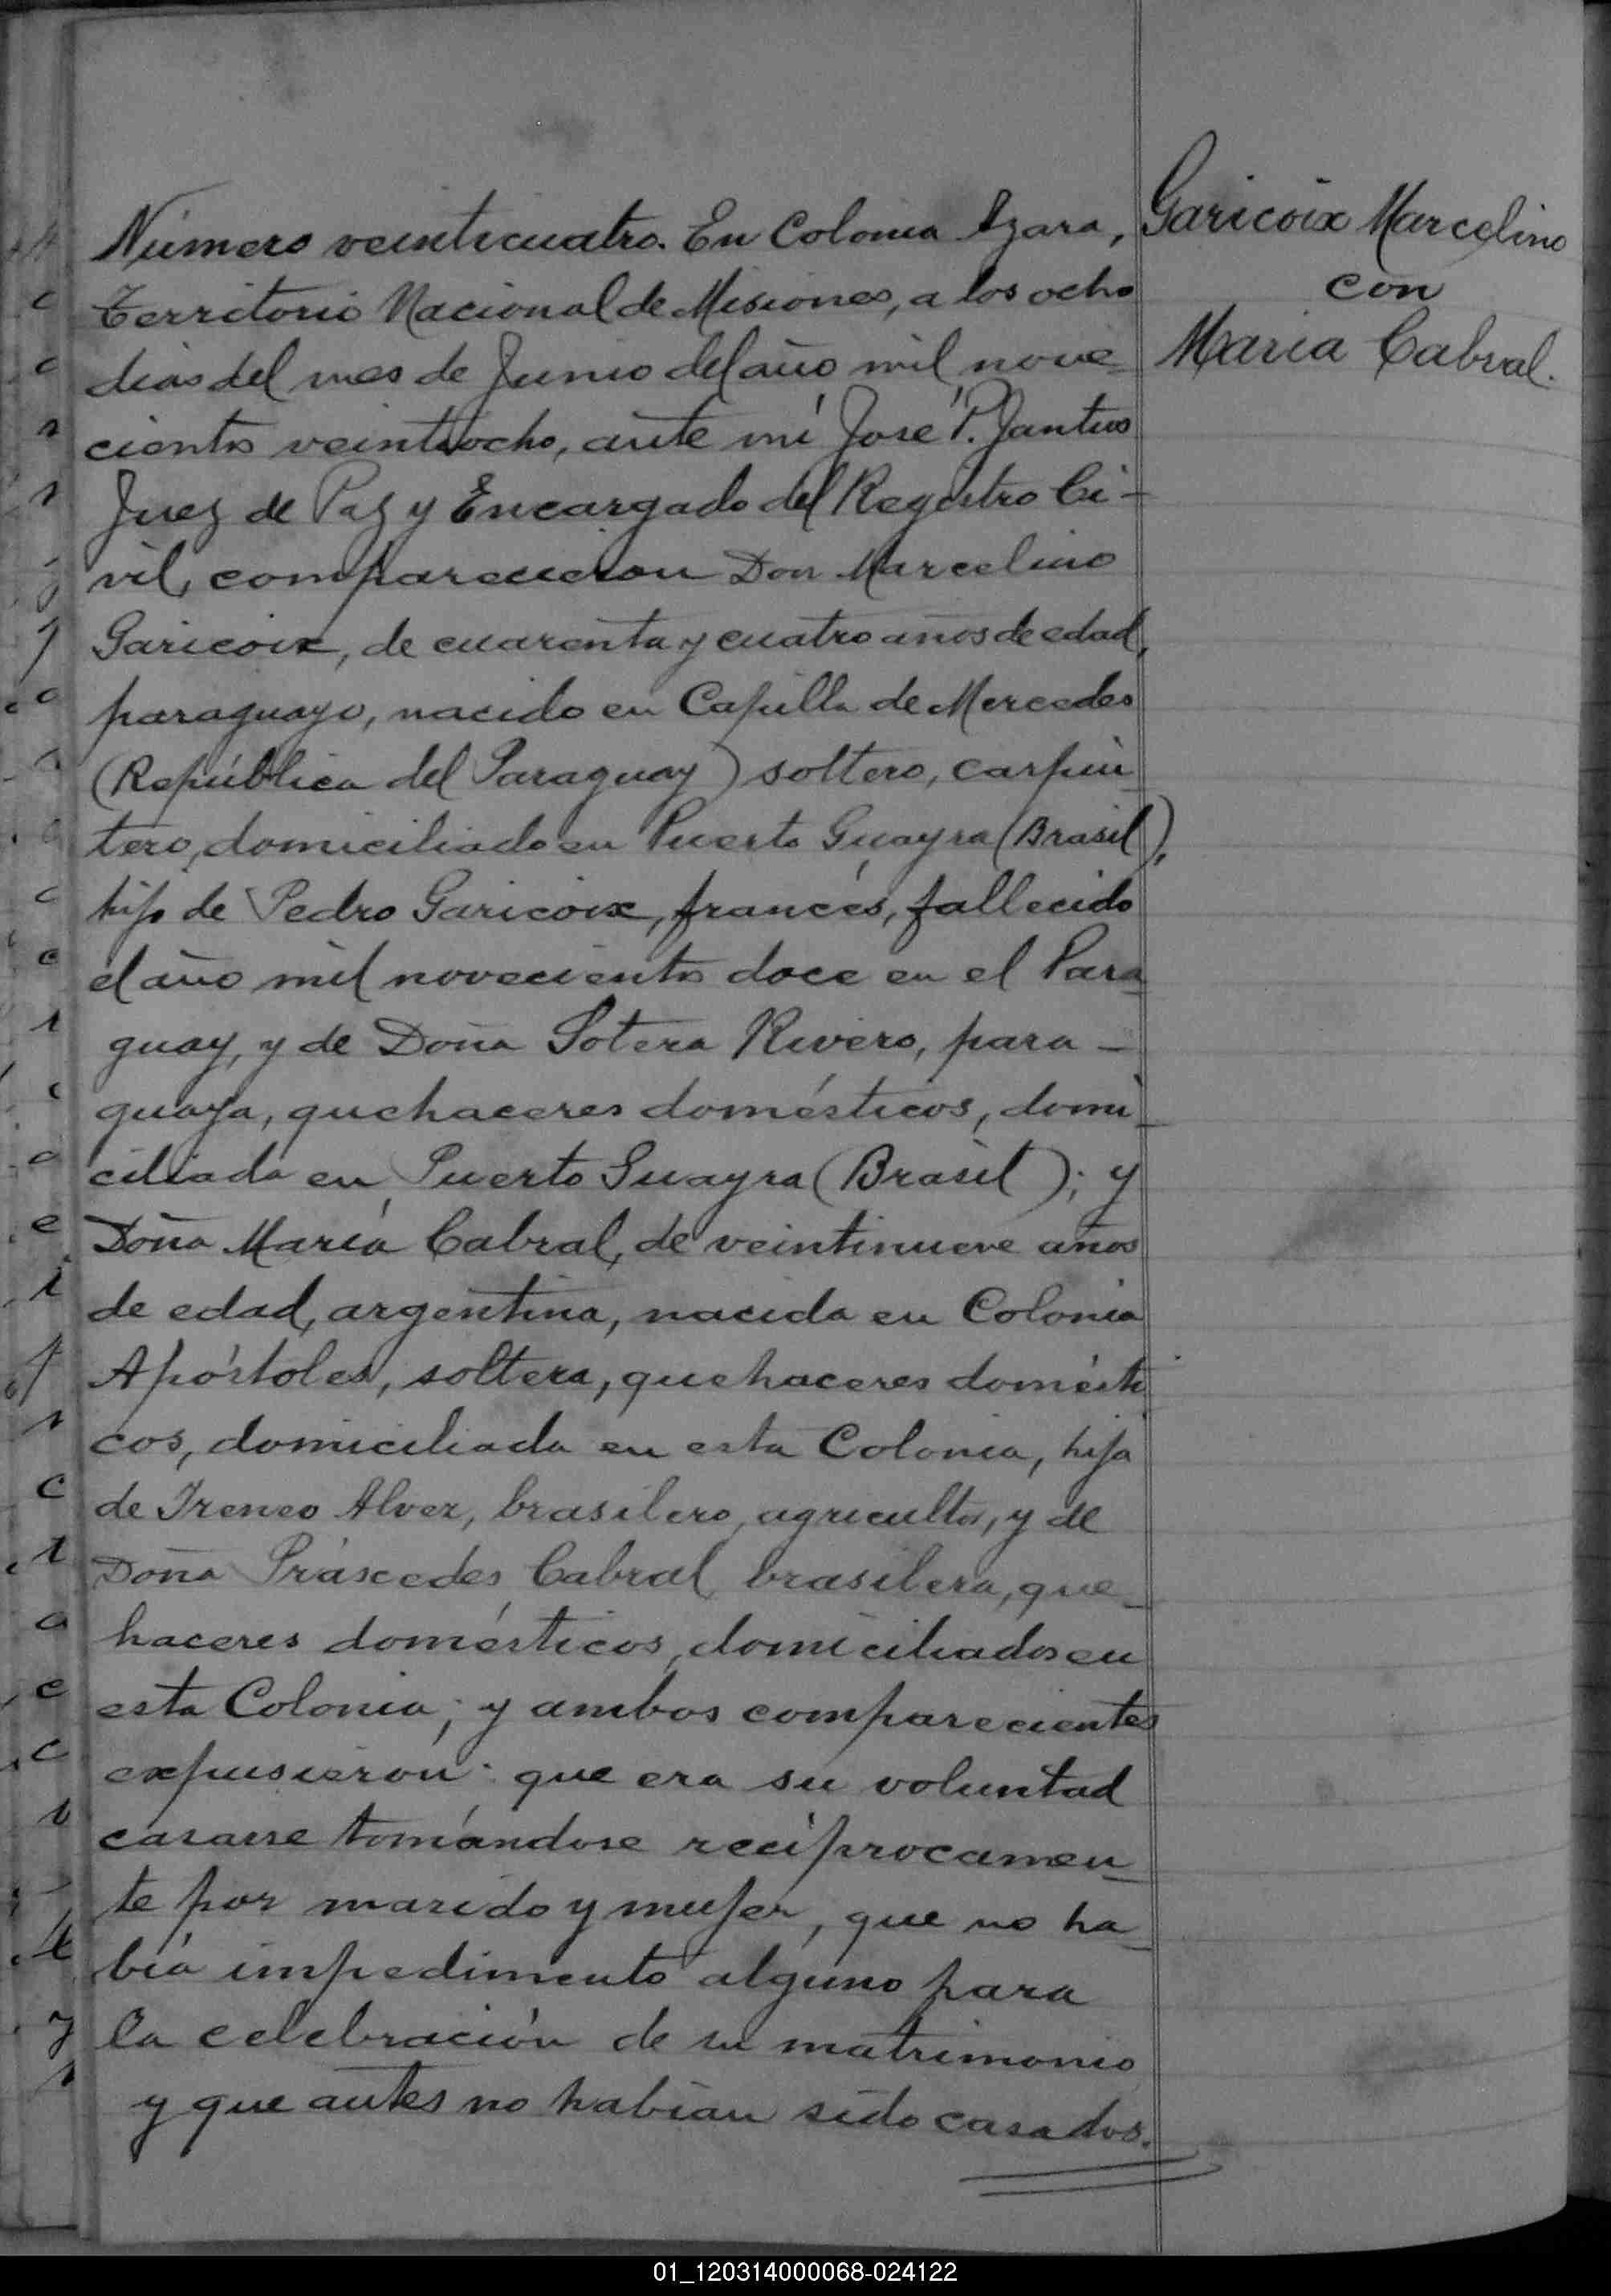 Número veinticuatro. En Colonia Azara,
Territorio Nacional de Misiones, a los ocho
dias del mes de Junio del año mil nove-
cientos veintiocho, ante mí José P. Jantus
Juez de Paz y Encargado del Registro Ci-
vil, comparecieron Don Marcelino
Garicoix, de cuarenta y cuatro años de edad,
paraguayo, nacido en Capilla de Mercedes
(República del Paraguay) soltero, carpin-
tero, domiciliado en Puerto Guayra (Brasil),
hijo de Pedro Garicoix, francés, fallecido
el año mil novecientos doce en el Para-
guay, y de Doña Sotera Rivero, para-
guaya, quehaceres domésticos, domi-
ciliada en Puerto Guayra (Brasil); y
Doña María Cabral, de veintinueve años
de edad, argentina, nacida en Colonia
Apóstoles, soltera, quehaceres domésti
cos, domiciliada en esta Colonia, hija
de Ireneo Alvez, brasilero, agricultor, y de
Doña Práscedes Cabral, brasilera, que-
haceres domésticos, domiciliados en
esta Colonia; y ambos comparecientes
expusieron: que era su voluntad
casarse tomándose recíprocamen-
te por marido y mujer, que no ha-
bía impedimento alguno para
la celebración de su matrimonio
y que antes no habían sido casados.
Garicoix Marcelino
con
María Cabral.
01_120314000068-024122